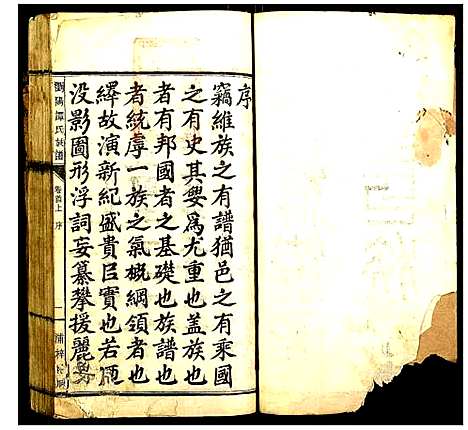 序
竊維族之有譜猶邑之有乘國
之有史其要為尤重也蓋族也
者有邦國者之基礎也族譜也
者統厚一族之氣概綱領者也
繹故演新紀盛貴臣實也若
没影圖形浮詞妄纂攀援麗
瀏陽譚氏族譜
卷首上
序
一